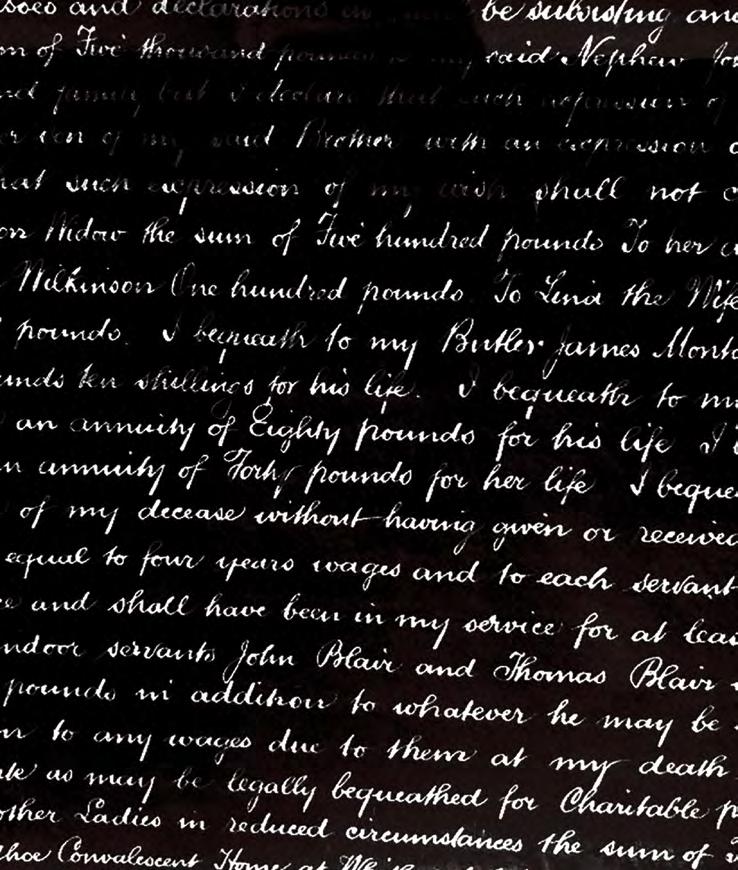 and declarations in be subsisting and
of Five thousand pounds my said Nephew
family but I declare that such expression of
son of my said Brother with an expression
such expression of my wish shall not
Widow the sum of Five hundred pounds To her
Wilkinson One hundred pounds To Lina the Wife
pounds. I bequeath to my Butler James
ten shillings for his life. I bequeath to
an annuity of Eighty pounds for his life I
annuity of Forty pounds for her life I
of my decease without having given or received
equal to four years wages and to each servant
and shall have been in my service for at
servants John Blair and Thomas Blair
pounds in addition to whatever he may be
to any wages due to them at my death
as may be legally bequeathed for Charitable
other Ladies in reduced circumstances the sum of
Convalescent Home at